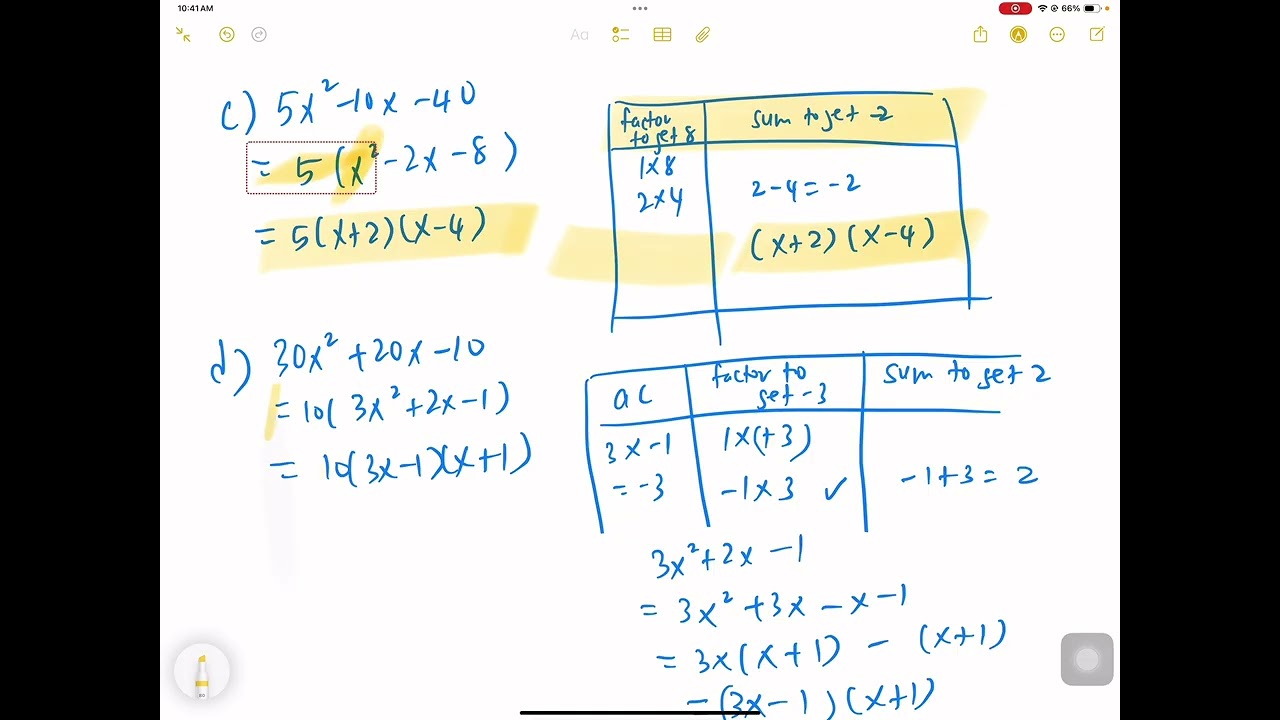 10:41 AM
66%
Aa
c) 5x² -10x -40
= 5(x² -2x -8)
= 5(x+2)(x-4)
factor to get 8
sum to get -2
1x8
2x4
2-4 = -2
(x+2)(x-4)
d) 30x² +20x -10
= 10(3x² +2x -1)
= 10(3x-1)(x+1)
ac
factor to get -3
sum to get 2
3x-1
= -3
1x(+3)
-1x3 ✓
-1+3 = 2
3x² +2x -1
= 3x² +3x -x -1
= 3x(x+1) - (x+1)
- (3x-1)(x+1)